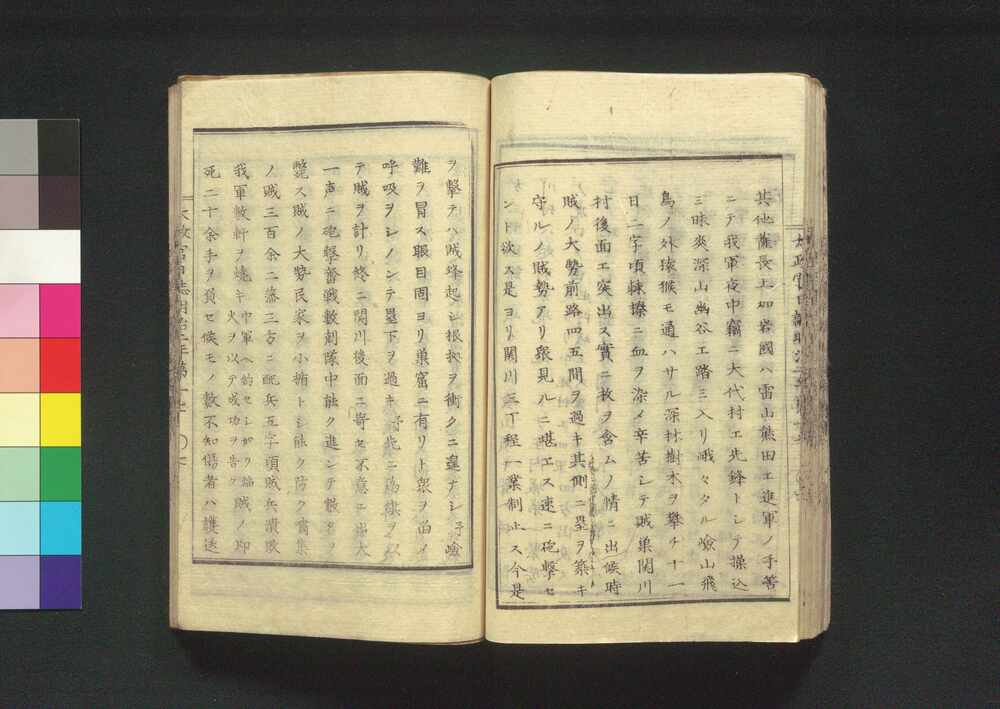 其他薩長上如岩國ハ雷山熊田エ進軍ノ手筈
ニテ我軍夜中竊ニ大代村エ先鋒トシテ操込
三昧爽深山幽谷エ踏ミ入リ峨々タル嶮山飛
鳥ノ外猿猴モ通ハサル深林樹木ヲ攀チ十一
日二字頃棘ニ血ヲ染メ辛苦シテ賊巣関川
村後面エ突出ス實ニ枚ヲ含ムノ情ニ出候時
賊ノ大勢前路四五間ヲ過キ其側ニ塁ヲ築キ
守ルノ賊勢アリ衆見ルニ堪エス速ニ砲撃セ
ント欲ス是ヨリ関川三丁程一業制止ス今是
ヲ撃テハ賊蜂起シ根拠ヲ衝クニ遑ナシ予嶮
難ヲ冒ス眼目固ヨリ巣窟ニ有リト衆ヲ
呼吸ヲシノンテ塁下ヲ過キ此ニ
テ賊ヲ計リ終ニ関川後面ニ寄セ不意ニ出大
一声ニ砲撃奮戦數刻隊中能ク進ンテ散々
斃ス賊ノ大勢民家ヲ小楯トシ能ク防ク
ノ賊三百余二藩三方ニ配兵五字頃賊兵潰敗
我軍數軒ヲ燒キ中軍ヘ約セシガ火ヲ以テ成功ヲ告ク賊ノ即
死二十余手ヲ負セ候モノ數不知傷者ハ護送
太政官日誌明治二年第